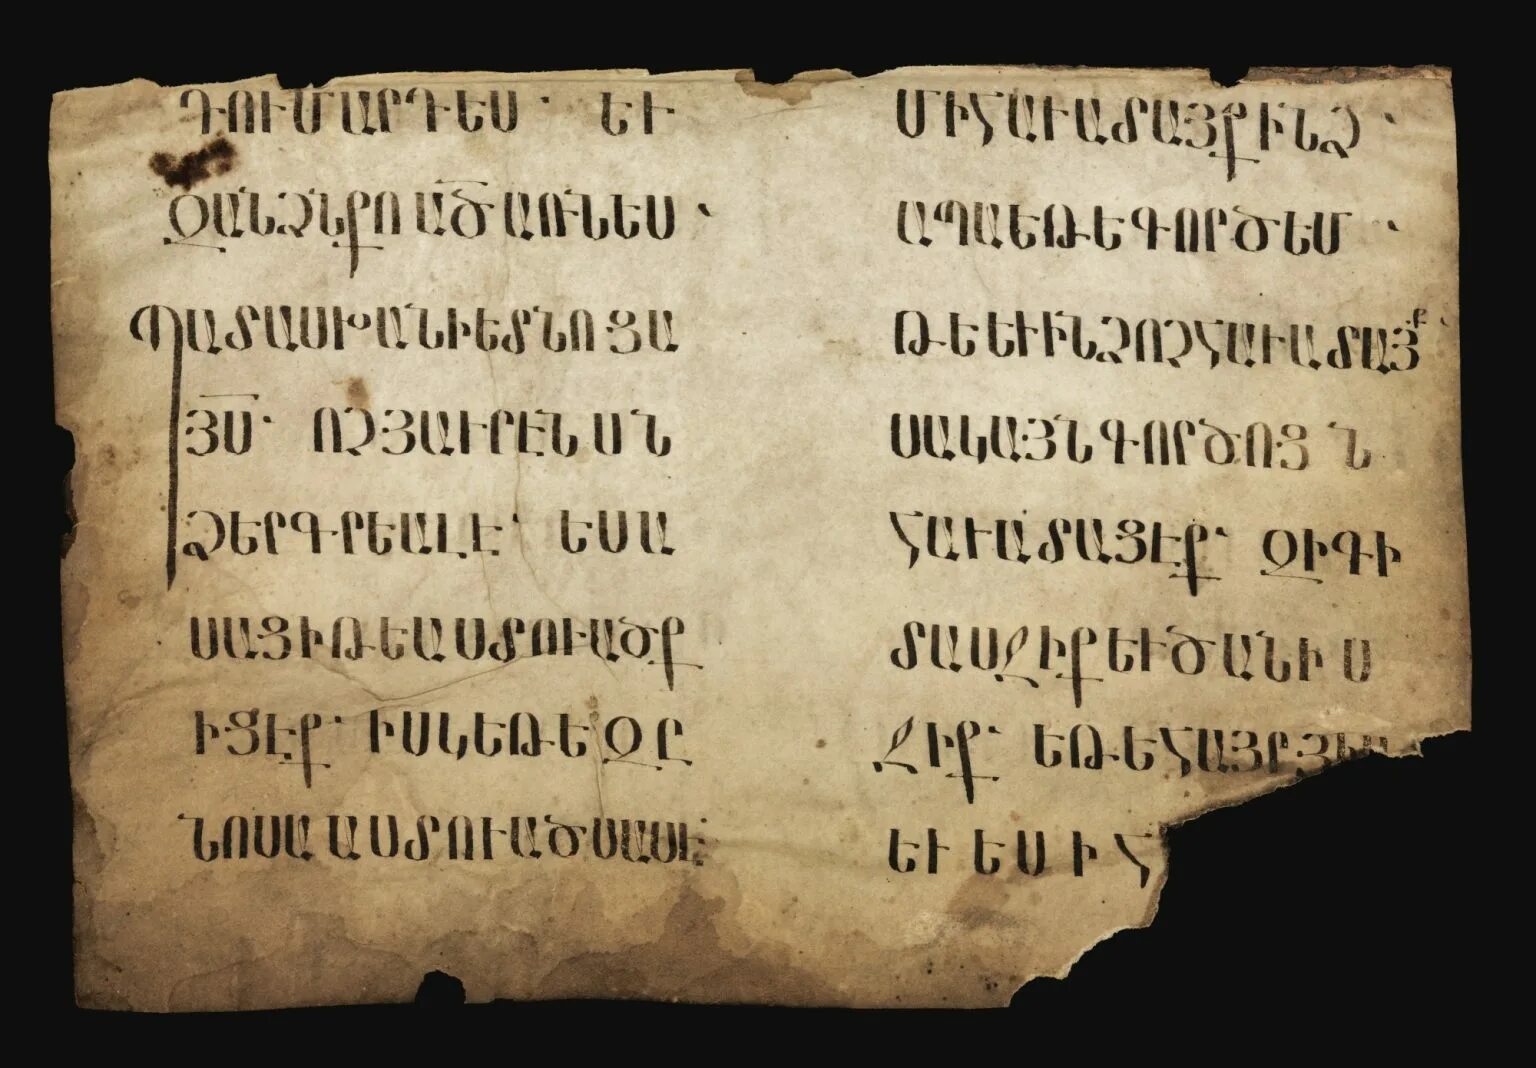 ԴՈՒՄԱՐԴԵՍ· ԵՒ
ԶԱՆՁՆՔՈԱ̅Ծ̅ԱՌՆԵՍ՝
ՊԱՏԱՍԽԱՆԻԵՏՆՈՑԱ
Յ̅Ս̅· ՈՉՅԱՒՐԷՆՍՆ
ՁԵՐԳՐԵԱԼԷ· ԵՍԱ
ՍԱՑԻԹԵԱՍՏՈՒԱԾՔ
ԻՑԷՔ· ԻՍԿԵԹԵԶԸ
ՆՈՍԱԱՍՏՈՒԱԾՍԱՍԷ
ՄԻՀԱՒԱՏԱՅՔԻՆՁ՝
ԱՊԱԵԹԵԳՈՐԾԵՄ՝
ԹԵԵՒԻՆՁՈՉՀԱՒԱՏԱՅՔ՝
ՍԱԿԱՅՆԳՈՐԾՈՑՆ
ՀԱՒԱՏԱՑԷՔ· ԶԻԳԻ
ՏԱՍՋԻՔԵՒԾԱՆԻՍ
ՋԻՔ· ԵԹԵՀԱՅՐ
ԵՒ ԵՍ Ի Հ